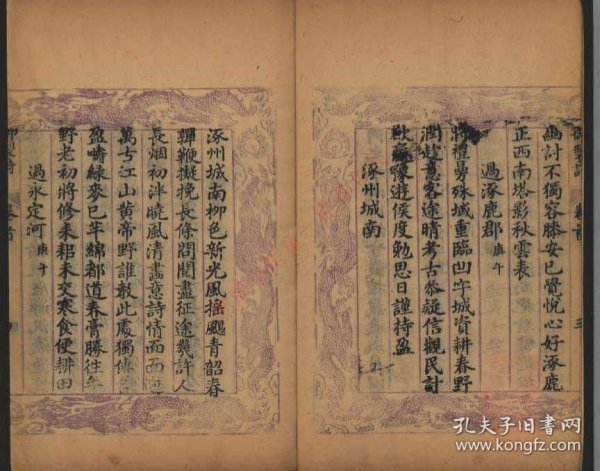 幽計不獨容膝安已覺悅心好涿鹿
正西南塔影秋雲表
過涿鹿郡 庚午
將禮勞殊域重臨凹牛城資耕春野
潤 意客途晴考古恭疑信觀民計
歉盈豫遊侯度勉思日謹持盈
涿州城南
涿州城南柳色新光風搖颺青韶春
嚲鞭擬挽長條閱閱盡征途幾許人
長烟初泮曉風清畫意詩情面面
萬古江山黄帝野誰教此處獨傳
盈疇緑麥已半綿都道春膏勝往年
野老初將修耒耜未交寒食便耕田
過永定河 庚午
孔夫子旧书网
www.kongfz.com